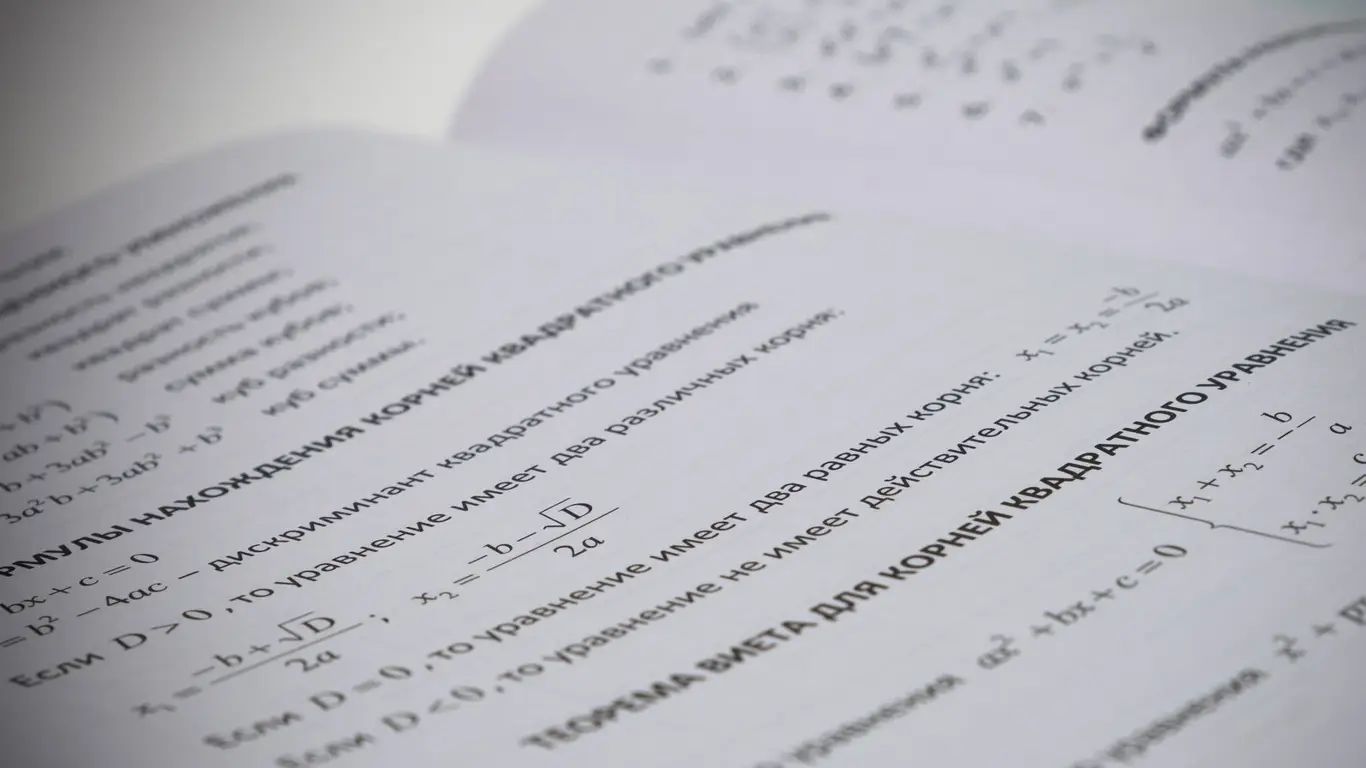 квадрат разности;
разность кубов;
сумма кубов;
куб разности;
куб суммы.
+ b²)
ab + b²)
b + 3ab² – b³
3a²b + 3ab² + b³
РМУЛЫ НАХОЖДЕНИЯ КОРНЕЙ КВАДРАТНОГО УРАВНЕНИЯ
bx + c = 0
= b² – 4ac – дискриминант квадратного уравнения
Если D > 0 , то уравнение имеет два различных корня:
x₁ = (–b + √D)/2a ; x₂ = (–b – √D)/2a
Если D = 0 , то уравнение имеет два равных корня: x₁ = x₂ = –b/2a
Если D < 0 , то уравнение не имеет действительных корней.
ТЕОРЕМА ВИЕТА ДЛЯ КОРНЕЙ КВАДРАТНОГО УРАВНЕНИЯ
уравнения ax² + bx + c = 0 { x₁ + x₂ = – b/a
x₁ · x₂ = c
уравнения x² + p
ax² + bx +
где x